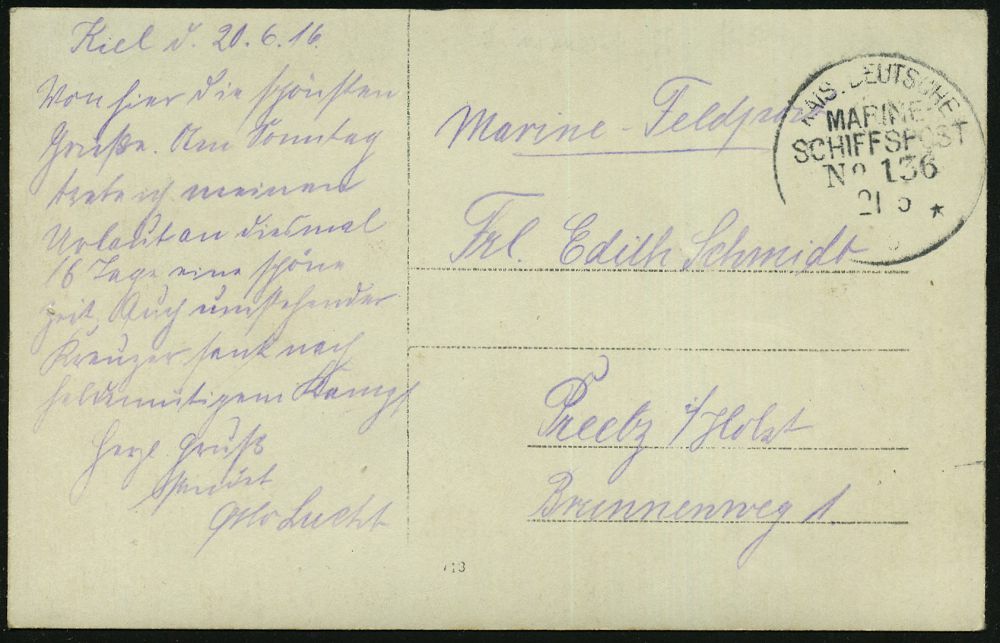 Kiel d. 20.6.16.
Von hier die schönsten
Grüße. Am Sonntag
trete ich meinen
Urlaub an diesmal
16 Tage eine schöne
Zeit. Auch umstehender
Kreuzer sank nach
heldenmütigem Kampf
Herzl Gruß
sendet
Otto Lucht
Marine-Feldpost
KAIS. DEUTSCHE
MARINE-
SCHIFFSPOST
No 136
21 6 *
Frl. Edith Schmidt
Preetz i/Holst
Brunnenweg 1